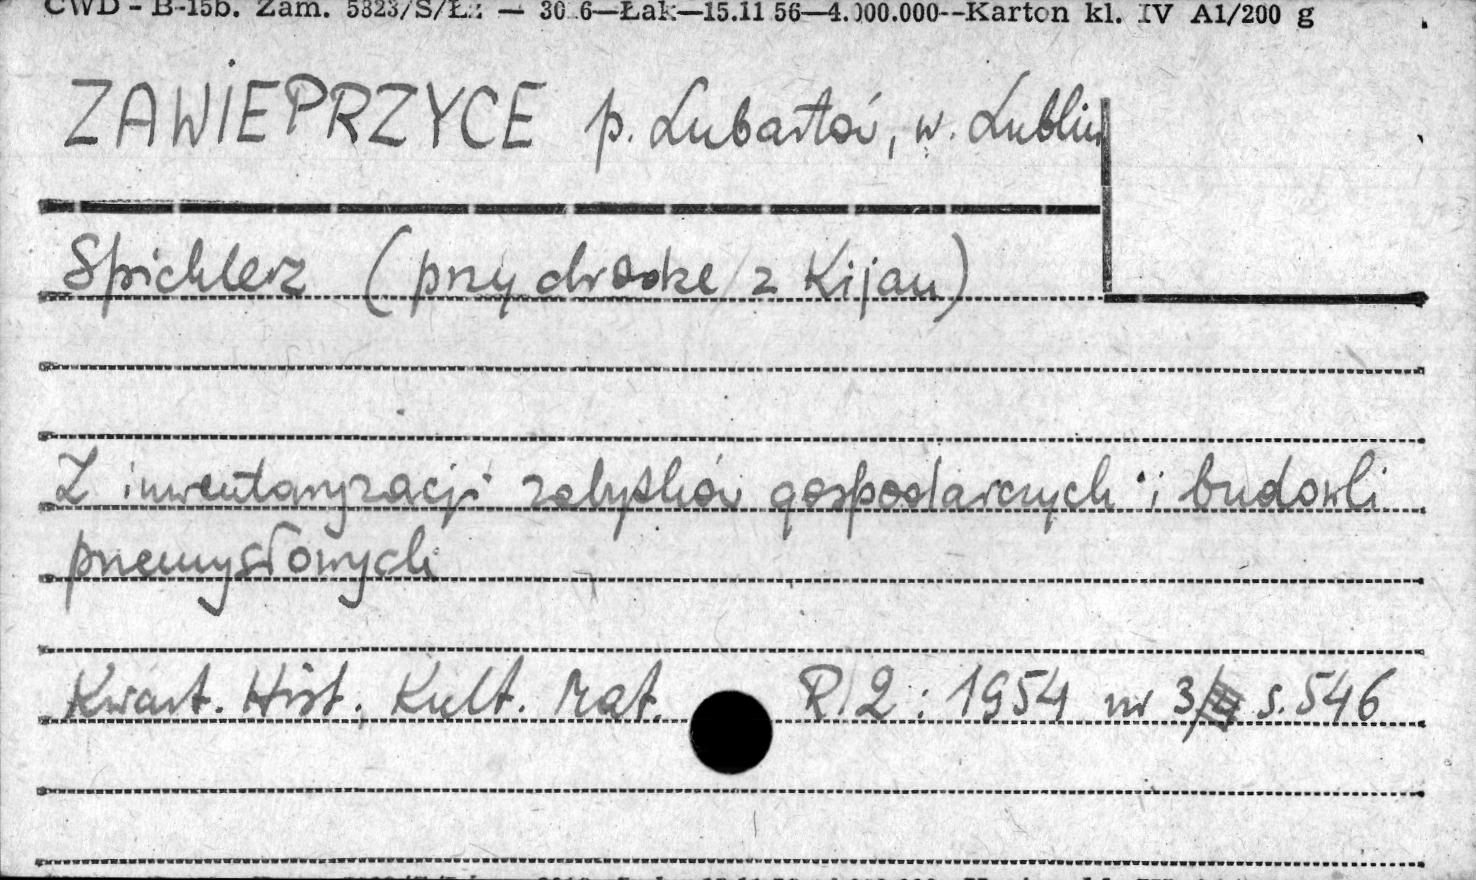 CWD - B-15b. Zam. 5823/S/Łż — 30 6—Łak—15.11 56—4.000.000--Karton kl. IV A1/200 g
ZAWIEPRZYCE p. Lubartów, w. Lublin
Spichlerz (przy drodze z Kijan)
Z inwentaryzacji zabytków gospodarczych i budowli
przemysłowych
Kwart. Hist. Kult. Mat. R. 2: 1954 nr 3/ s. 546